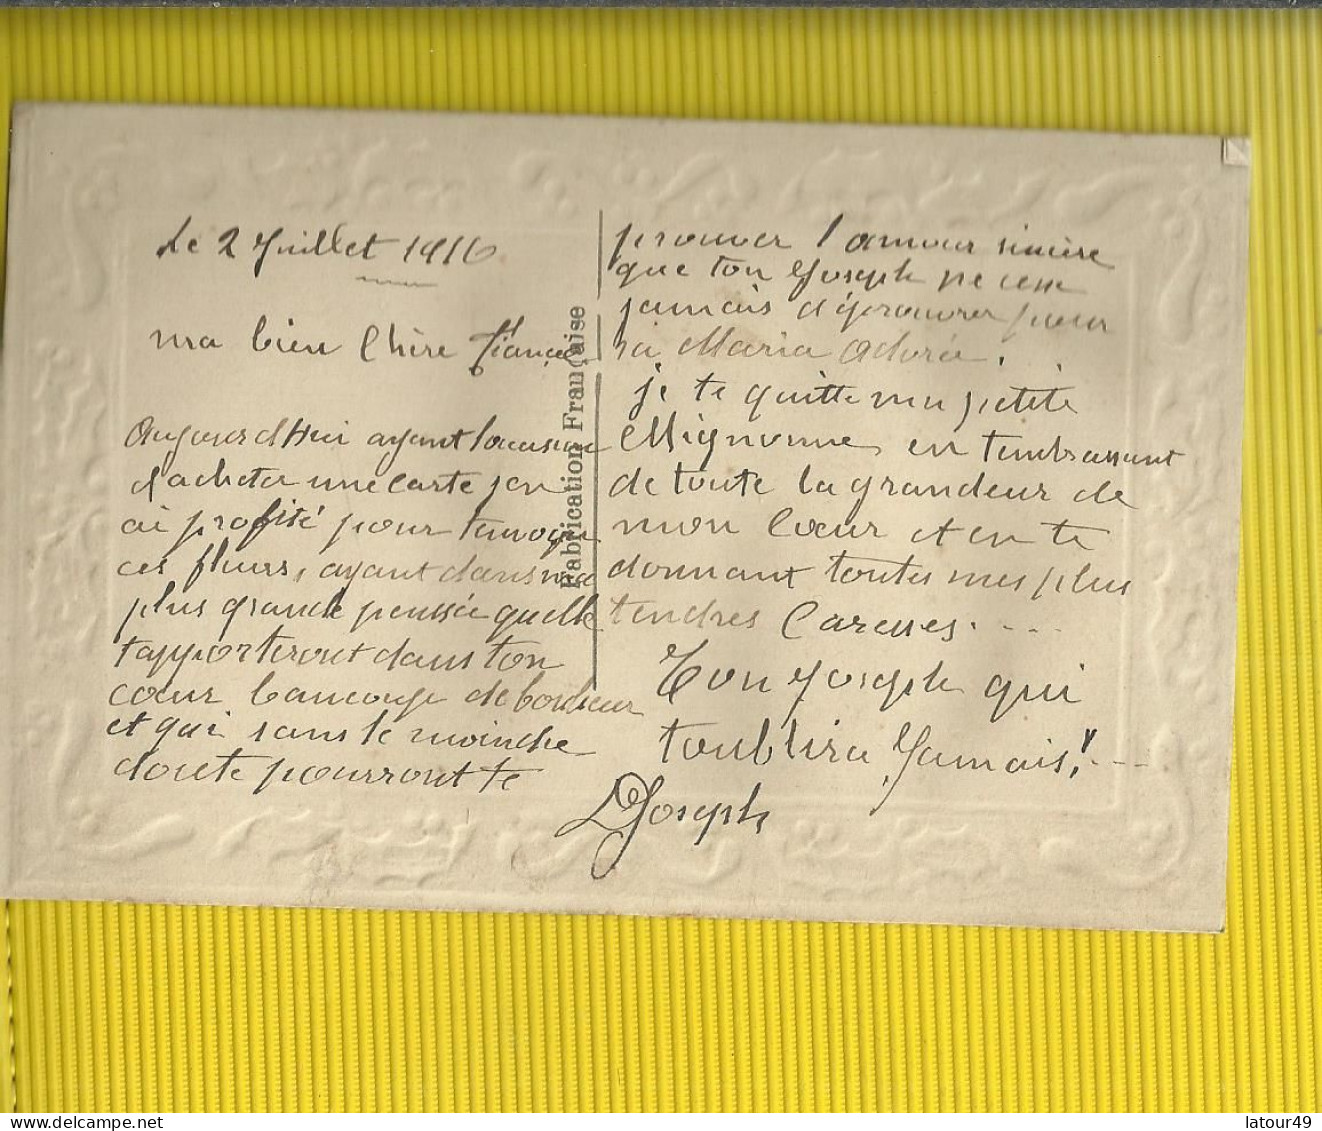 le 2 Juillet 1916
ma bien Chère fiancée
Aujourd Hui ayant l'ocasion
d'acheter une carte j'en
ai profité pour t'envoyer
ces fleurs, ayant dans ma
plus grande pensée quelle
t'apporteront dans ton
cœur baucoup de bonheur
et qui sans le moindre
doute pourront te
prouver l'amour sincère
que ton Joseph ne cesse
jamais d'éprouver pour
sa Maria adorée.
je te quitte ma petite
Mignonne en t'embrassant
de toute la grandeur de
mon Cœur et en te
donnant toutes mes plus
tendres Caresses. ---
Ton Joseph qui
t'oublira Jamais! ---
Joseph
Fabrication Française
latour49
delcampe.net